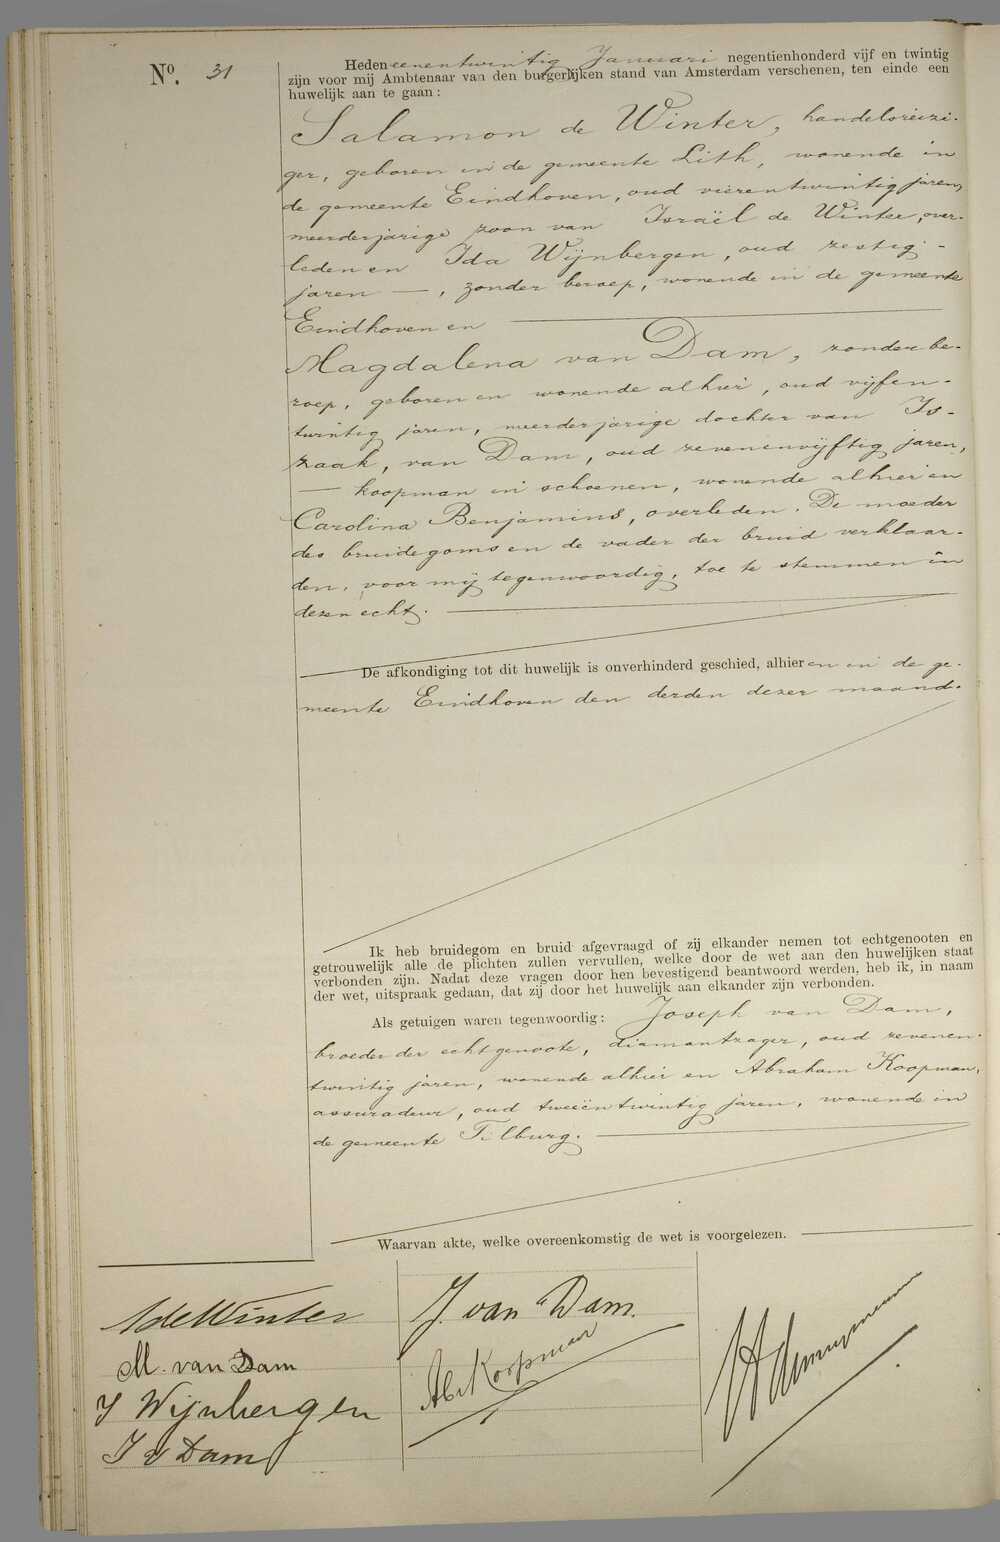 No. 31
Heden eenentwintig Januari negentienhonderd vijf en twintig
zijn voor mij Ambtenaar van den burgerlijken stand van Amsterdam verschenen, ten einde een
huwelijk aan te gaan:
Salamon de Winter, handelsreizi-
ger, geboren in de gemeente Lith, wonende in
de gemeente Eindhoven, oud vierentwintig jaren,
meerderjarige zoon van Israël de Winter, over-
leden en Ida Wijnbergen, oud zestig -
jaren —, zonder beroep, wonende in de gemeente
Eindhoven en
Magdalena van Dam, zonder be-
roep, geboren en wonende alhier, oud vijfen-
twintig jaren, meerderjarige dochter van Is-
zaak, van Dam, oud zevenenvijftig jaren,
— koopman in schoenen, wonende alhier en
Carolina Benjamins, overleden. De moeder
des bruidegoms en de vader der bruid verklaar-
den, voor mij tegenwoordig, toe te stemmen in
dezen echt.
De afkondiging tot dit huwelijk is onverhinderd geschied, alhier en in de ge-
meente Eindhoven den derden dezer maand.
Ik heb bruidegom en bruid afgevraagd of zij elkander nemen tot echtgenooten en
getrouwelijk alle de plichten zullen vervullen, welke door de wet aan den huwelijken staat
verbonden zijn. Nadat deze vragen door hen bevestigend beantwoord werden, heb ik, in naam
der wet, uitspraak gedaan, dat zij door het huwelijk aan elkander zijn verbonden.
Als getuigen waren tegenwoordig: Joseph van Dam,
broeder der echtgenoote, diamantzager, oud zevenen-
twintig jaren, wonende alhier en Abraham Koopman,
assuradeur, oud tweeëntwintig jaren, wonende in
de gemeente Tilburg.
Waarvan akte, welke overeenkomstig de wet is voorgelezen.
S de Winter
M. van Dam
I Wijnbergen
I v Dam
J. van Dam.
Ab. Koopman